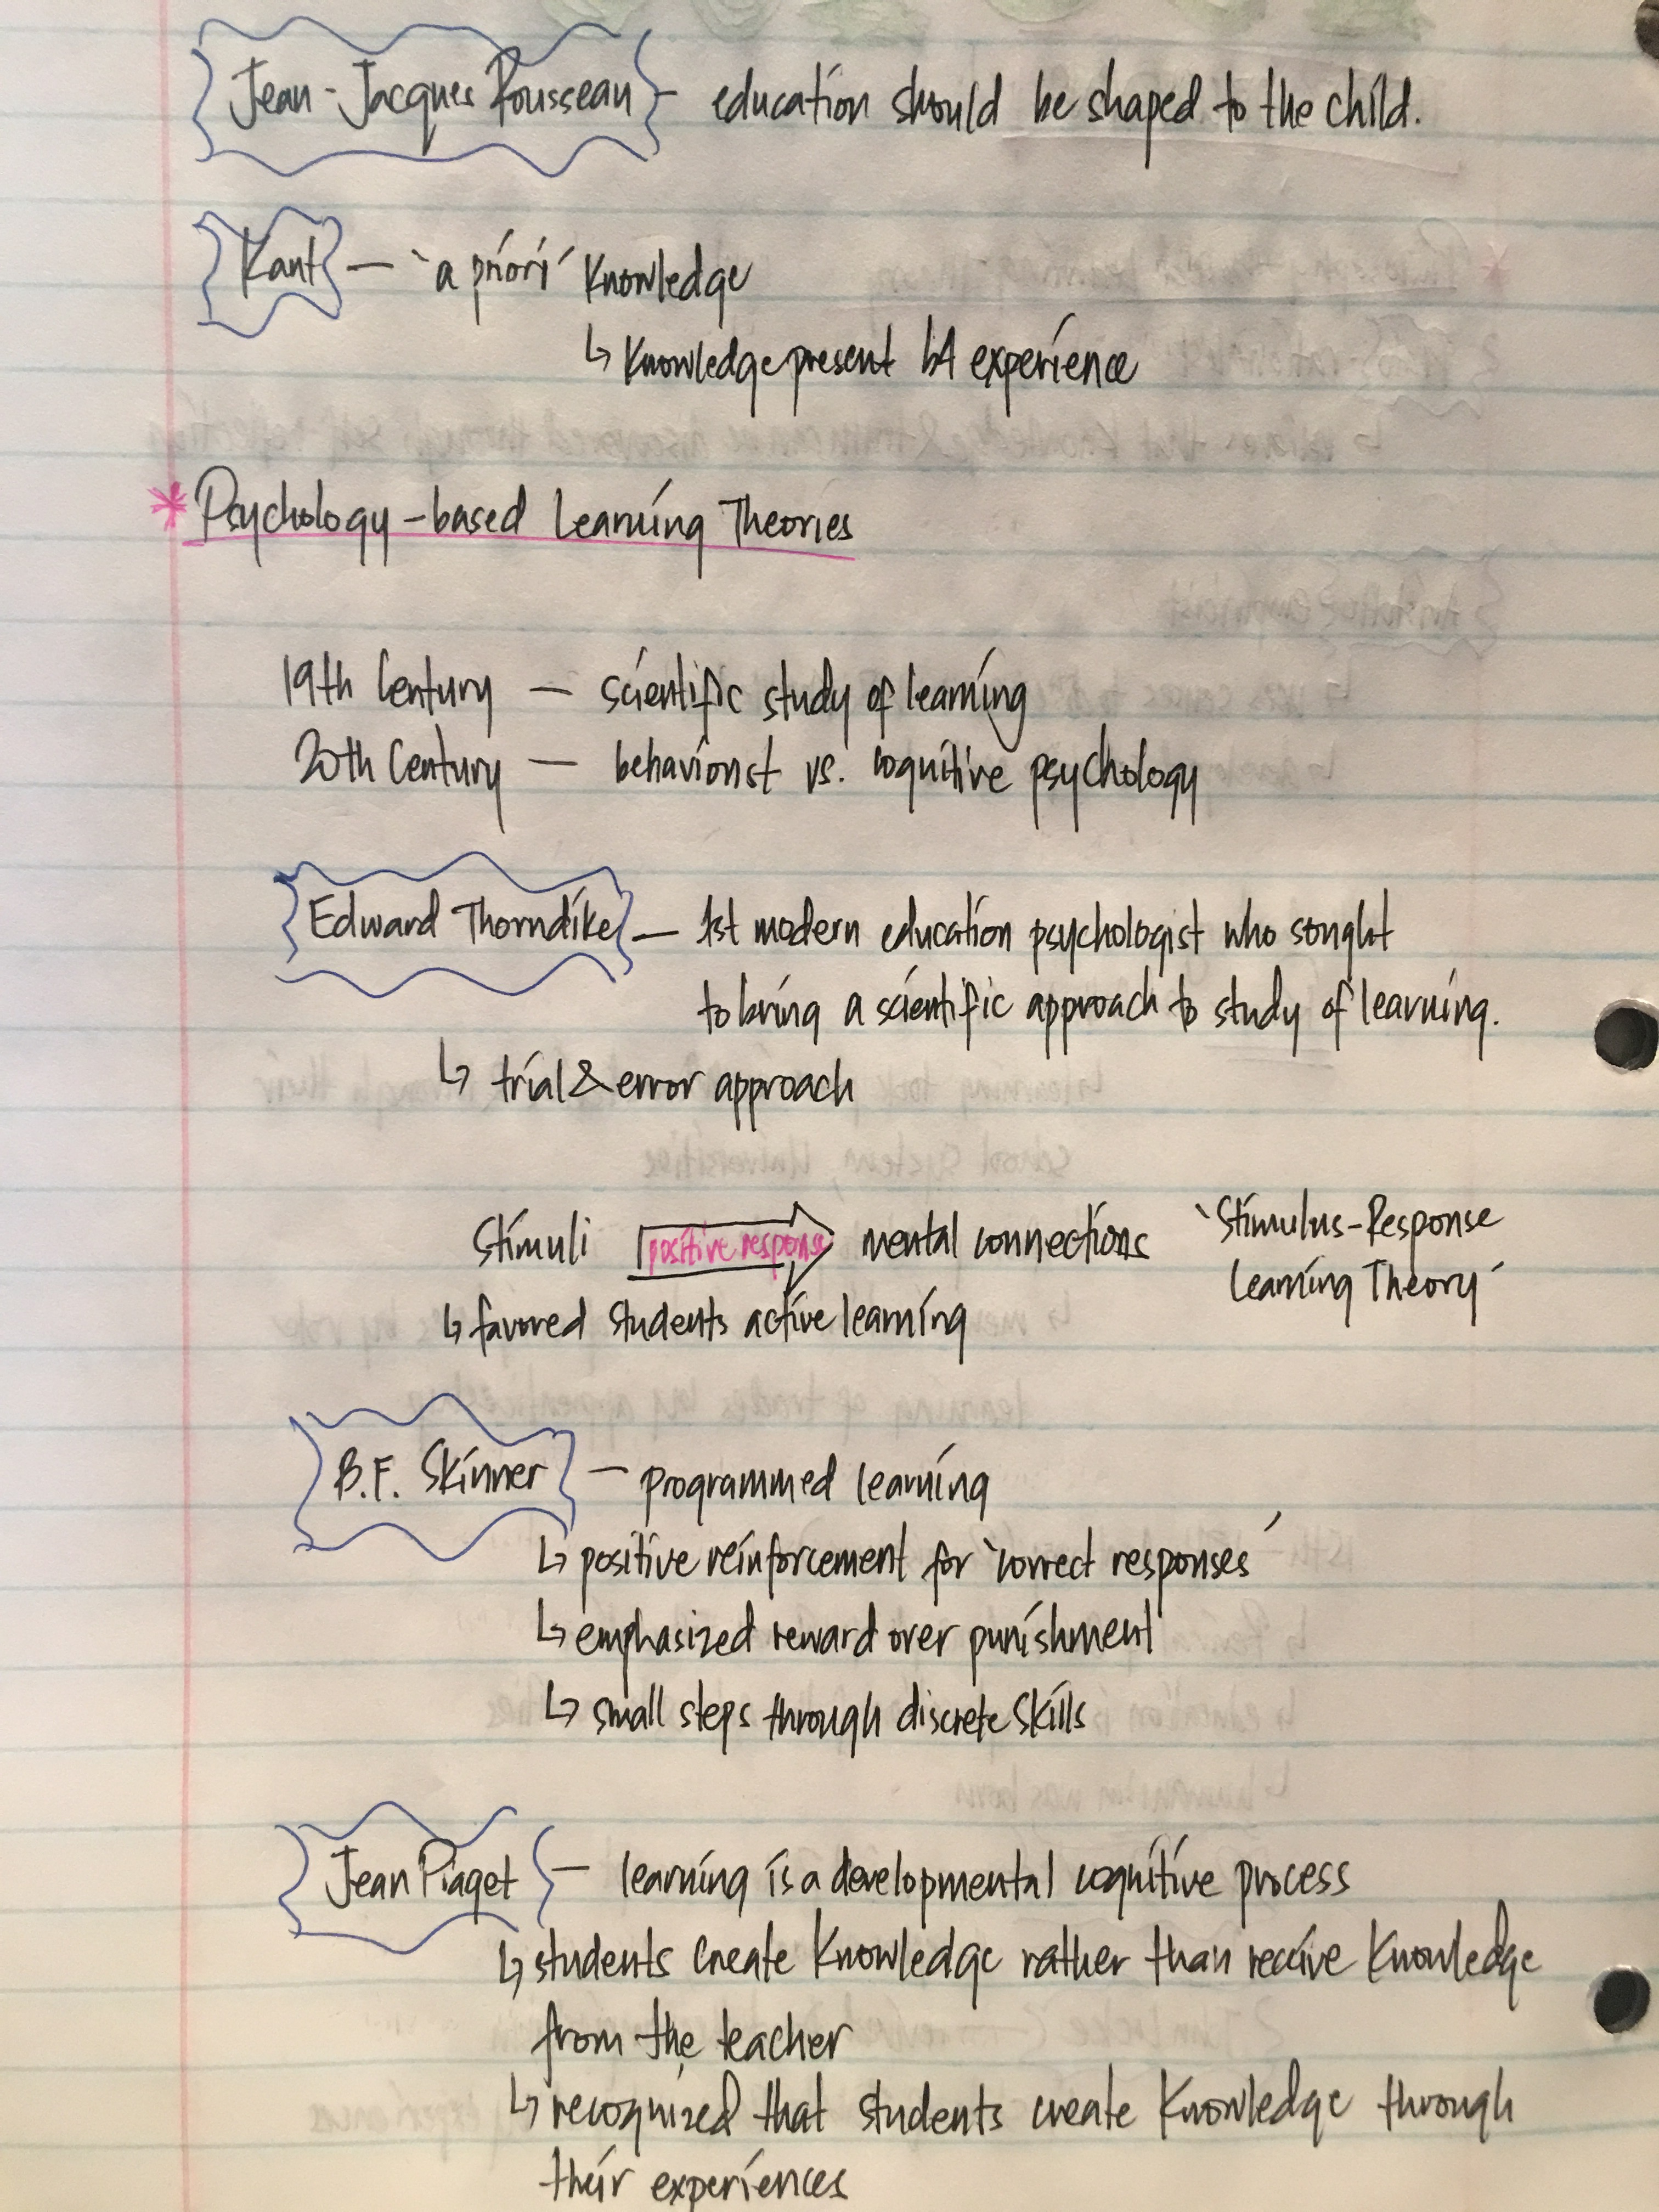 Jean-Jacques Rousseau - education should be shaped to the child.
Kant - `a priori´ knowledge
↳ knowledge present b4 experience
* Psychology-based Learning Theories
19th Century - scientific study of learning
20th Century - behaviorist vs. cognitive psychology
Edward Thorndike - 1st modern education psychologist who sought
to bring a scientific approach to study of learning.
↳ trial & error approach
Stimuli positive response mental connections `Stimulus-Response
Learning Theory´
↳ favored students active learning
B.F. Skinner - programmed learning
↳ positive reinforcement for `correct responses´
↳ emphasized reward over punishment
↳ small steps through discrete skills
Jean Piaget - learning is a developmental cognitive process
↳ students create knowledge rather than receive knowledge
from the teacher
↳ recognized that students create knowledge through
their experiences